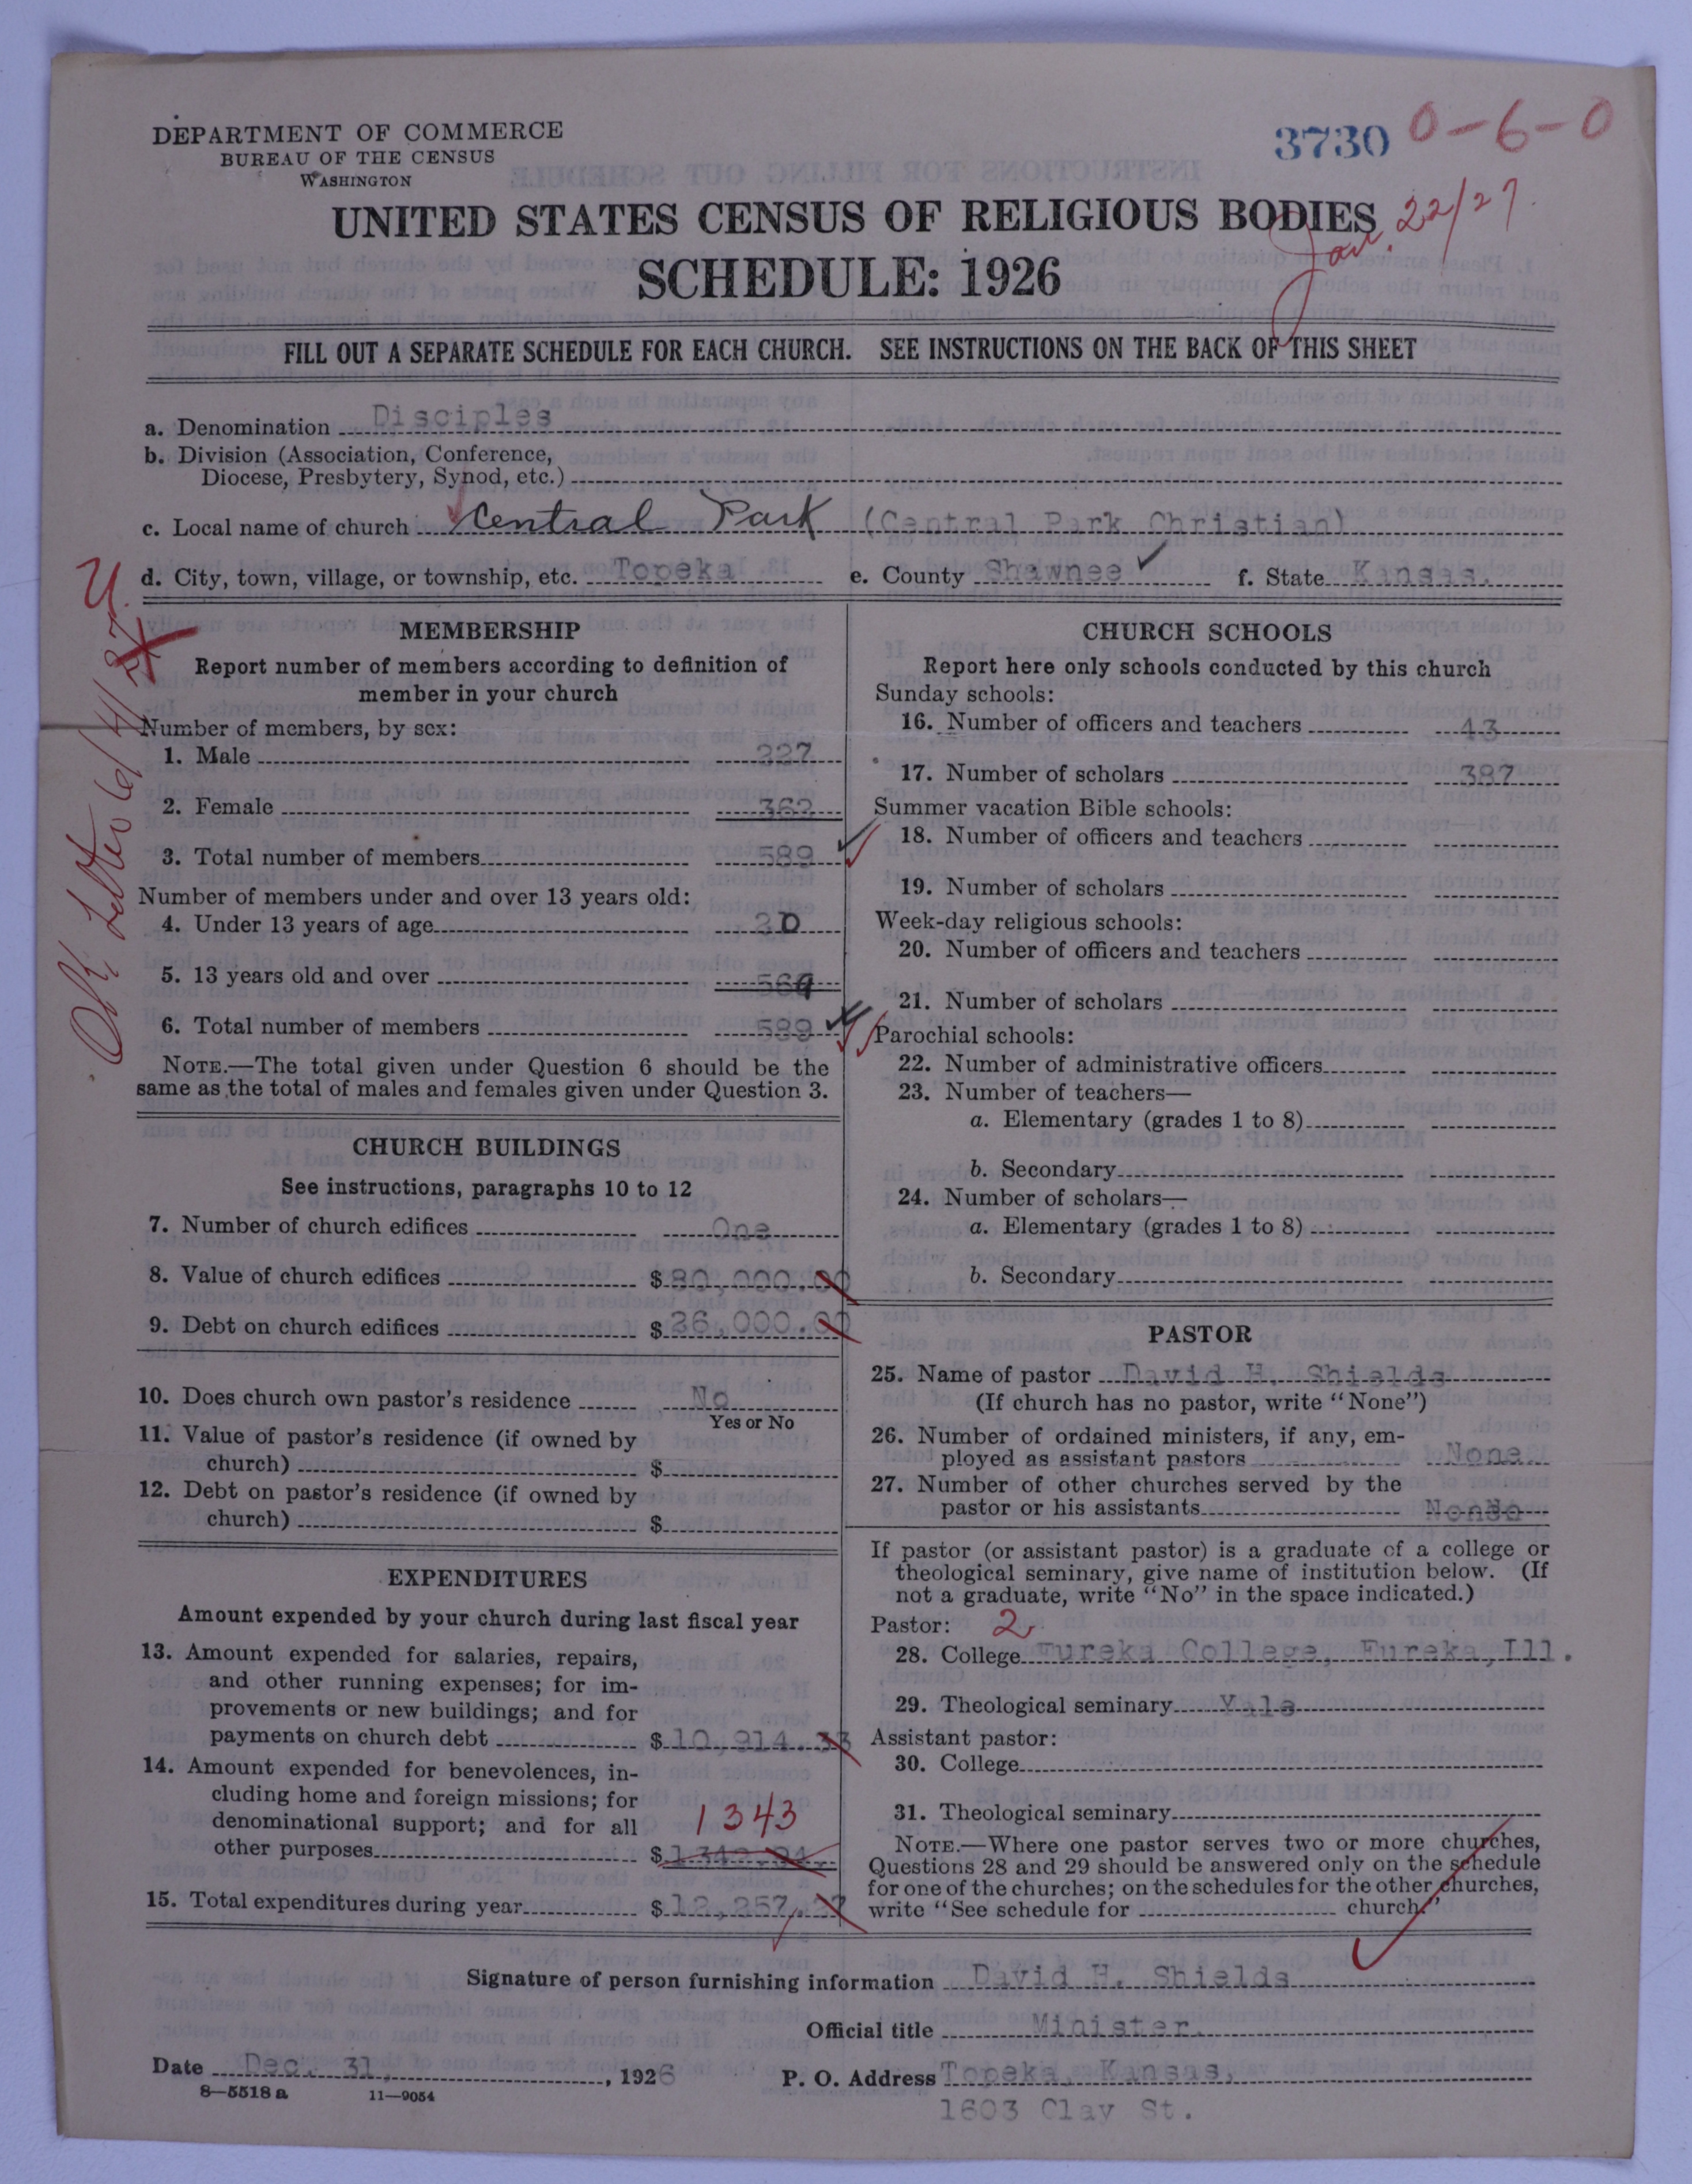 DEPARTMENT OF COMMERCE
BUREAU OF THE CENSUS
WASHINGTON
3730 0-6-0
UNITED STATES CENSUS OF RELIGIOUS BODIES
Jan. 22/27
SCHEDULE: 1926
FILL OUT A SEPARATE SCHEDULE FOR EACH CHURCH. SEE INSTRUCTIONS ON THE BACK OF THIS SHEET
a. Denomination Disciples
b. Division (Association, Conference,
Diocese, Presbytery, Synod, etc.)
c. Local name of church Central Park (Central Park Christian)
d. City, town, village, or township, etc. Topeka e. County Shawnee f. State Kansas.
MEMBERSHIP
Report number of members according to definition of
member in your church
Number of members, by sex:
1. Male 227
2. Female 362
3. Total number of members 589
Number of members under and over 13 years old:
4. Under 13 years of age 20
5. 13 years old and over 569
6. Total number of members 589
NOTE.—The total given under Question 6 should be the
same as the total of males and females given under Question 3.
CHURCH BUILDINGS
See instructions, paragraphs 10 to 12
7. Number of church edifices One
8. Value of church edifices $80,000.00
9. Debt on church edifices $26,000.00
10. Does church own pastor's residence No
Yes or No
11. Value of pastor's residence (if owned by
church) $
12. Debt on pastor's residence (if owned by
church) $
EXPENDITURES
Amount expended by your church during last fiscal year
13. Amount expended for salaries, repairs,
and other running expenses; for im-
provements or new buildings; and for
payments on church debt $10,914.33
14. Amount expended for benevolences, in-
cluding home and foreign missions; for
denominational support; and for all 1343
other purposes $
15. Total expenditures during year $12,257.27
CHURCH SCHOOLS
Report here only schools conducted by this church
Sunday schools:
16. Number of officers and teachers 43
17. Number of scholars 387
Summer vacation Bible schools:
18. Number of officers and teachers
19. Number of scholars
Week-day religious schools:
20. Number of officers and teachers
21. Number of scholars
Parochial schools:
22. Number of administrative officers
23. Number of teachers—
a. Elementary (grades 1 to 8)
b. Secondary
24. Number of scholars—
a. Elementary (grades 1 to 8)
b. Secondary
PASTOR
25. Name of pastor David H. Shields
(If church has no pastor, write "None")
26. Number of ordained ministers, if any, em-
ployed as assistant pastors None
27. Number of other churches served by the
pastor or his assistants
If pastor (or assistant pastor) is a graduate of a college or
theological seminary, give name of institution below. (If
not a graduate, write "No" in the space indicated.)
Pastor: 2
28. College Eureka College, Eureka, Ill.
29. Theological seminary Yale
Assistant pastor:
30. College
31. Theological seminary
NOTE.—Where one pastor serves two or more churches,
Questions 28 and 29 should be answered only on the schedule
for one of the churches; on the schedules for the other churches,
write "See schedule for church."
Signature of person furnishing information David H. Shields
Official title Minister.
Date Dec. 31, 1926 P. O. Address Topeka, Kansas,
8—5518 a 11—9054
1603 Clay St.